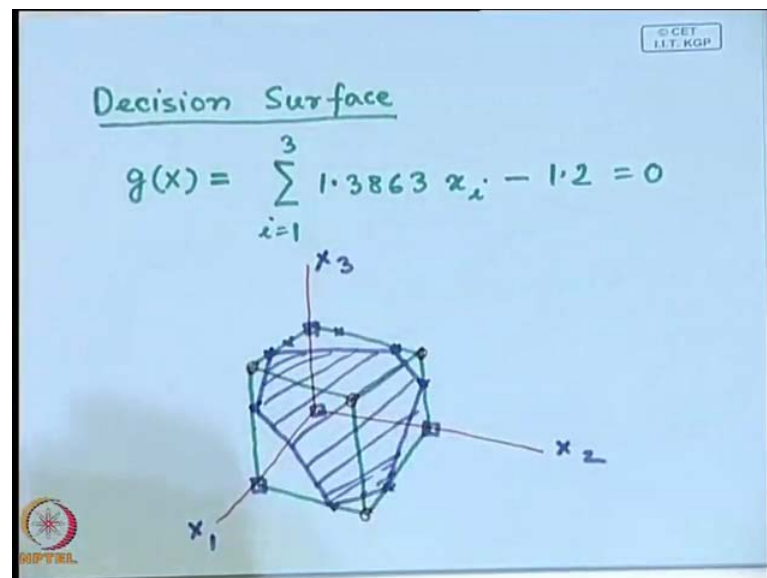 © CET
I.I.T. KGP
Decision Surface
g(x) = \sum_{i=1}^{3} 1.3863 x_i - 1.2 = 0
x3
x2
x1
NPTEL